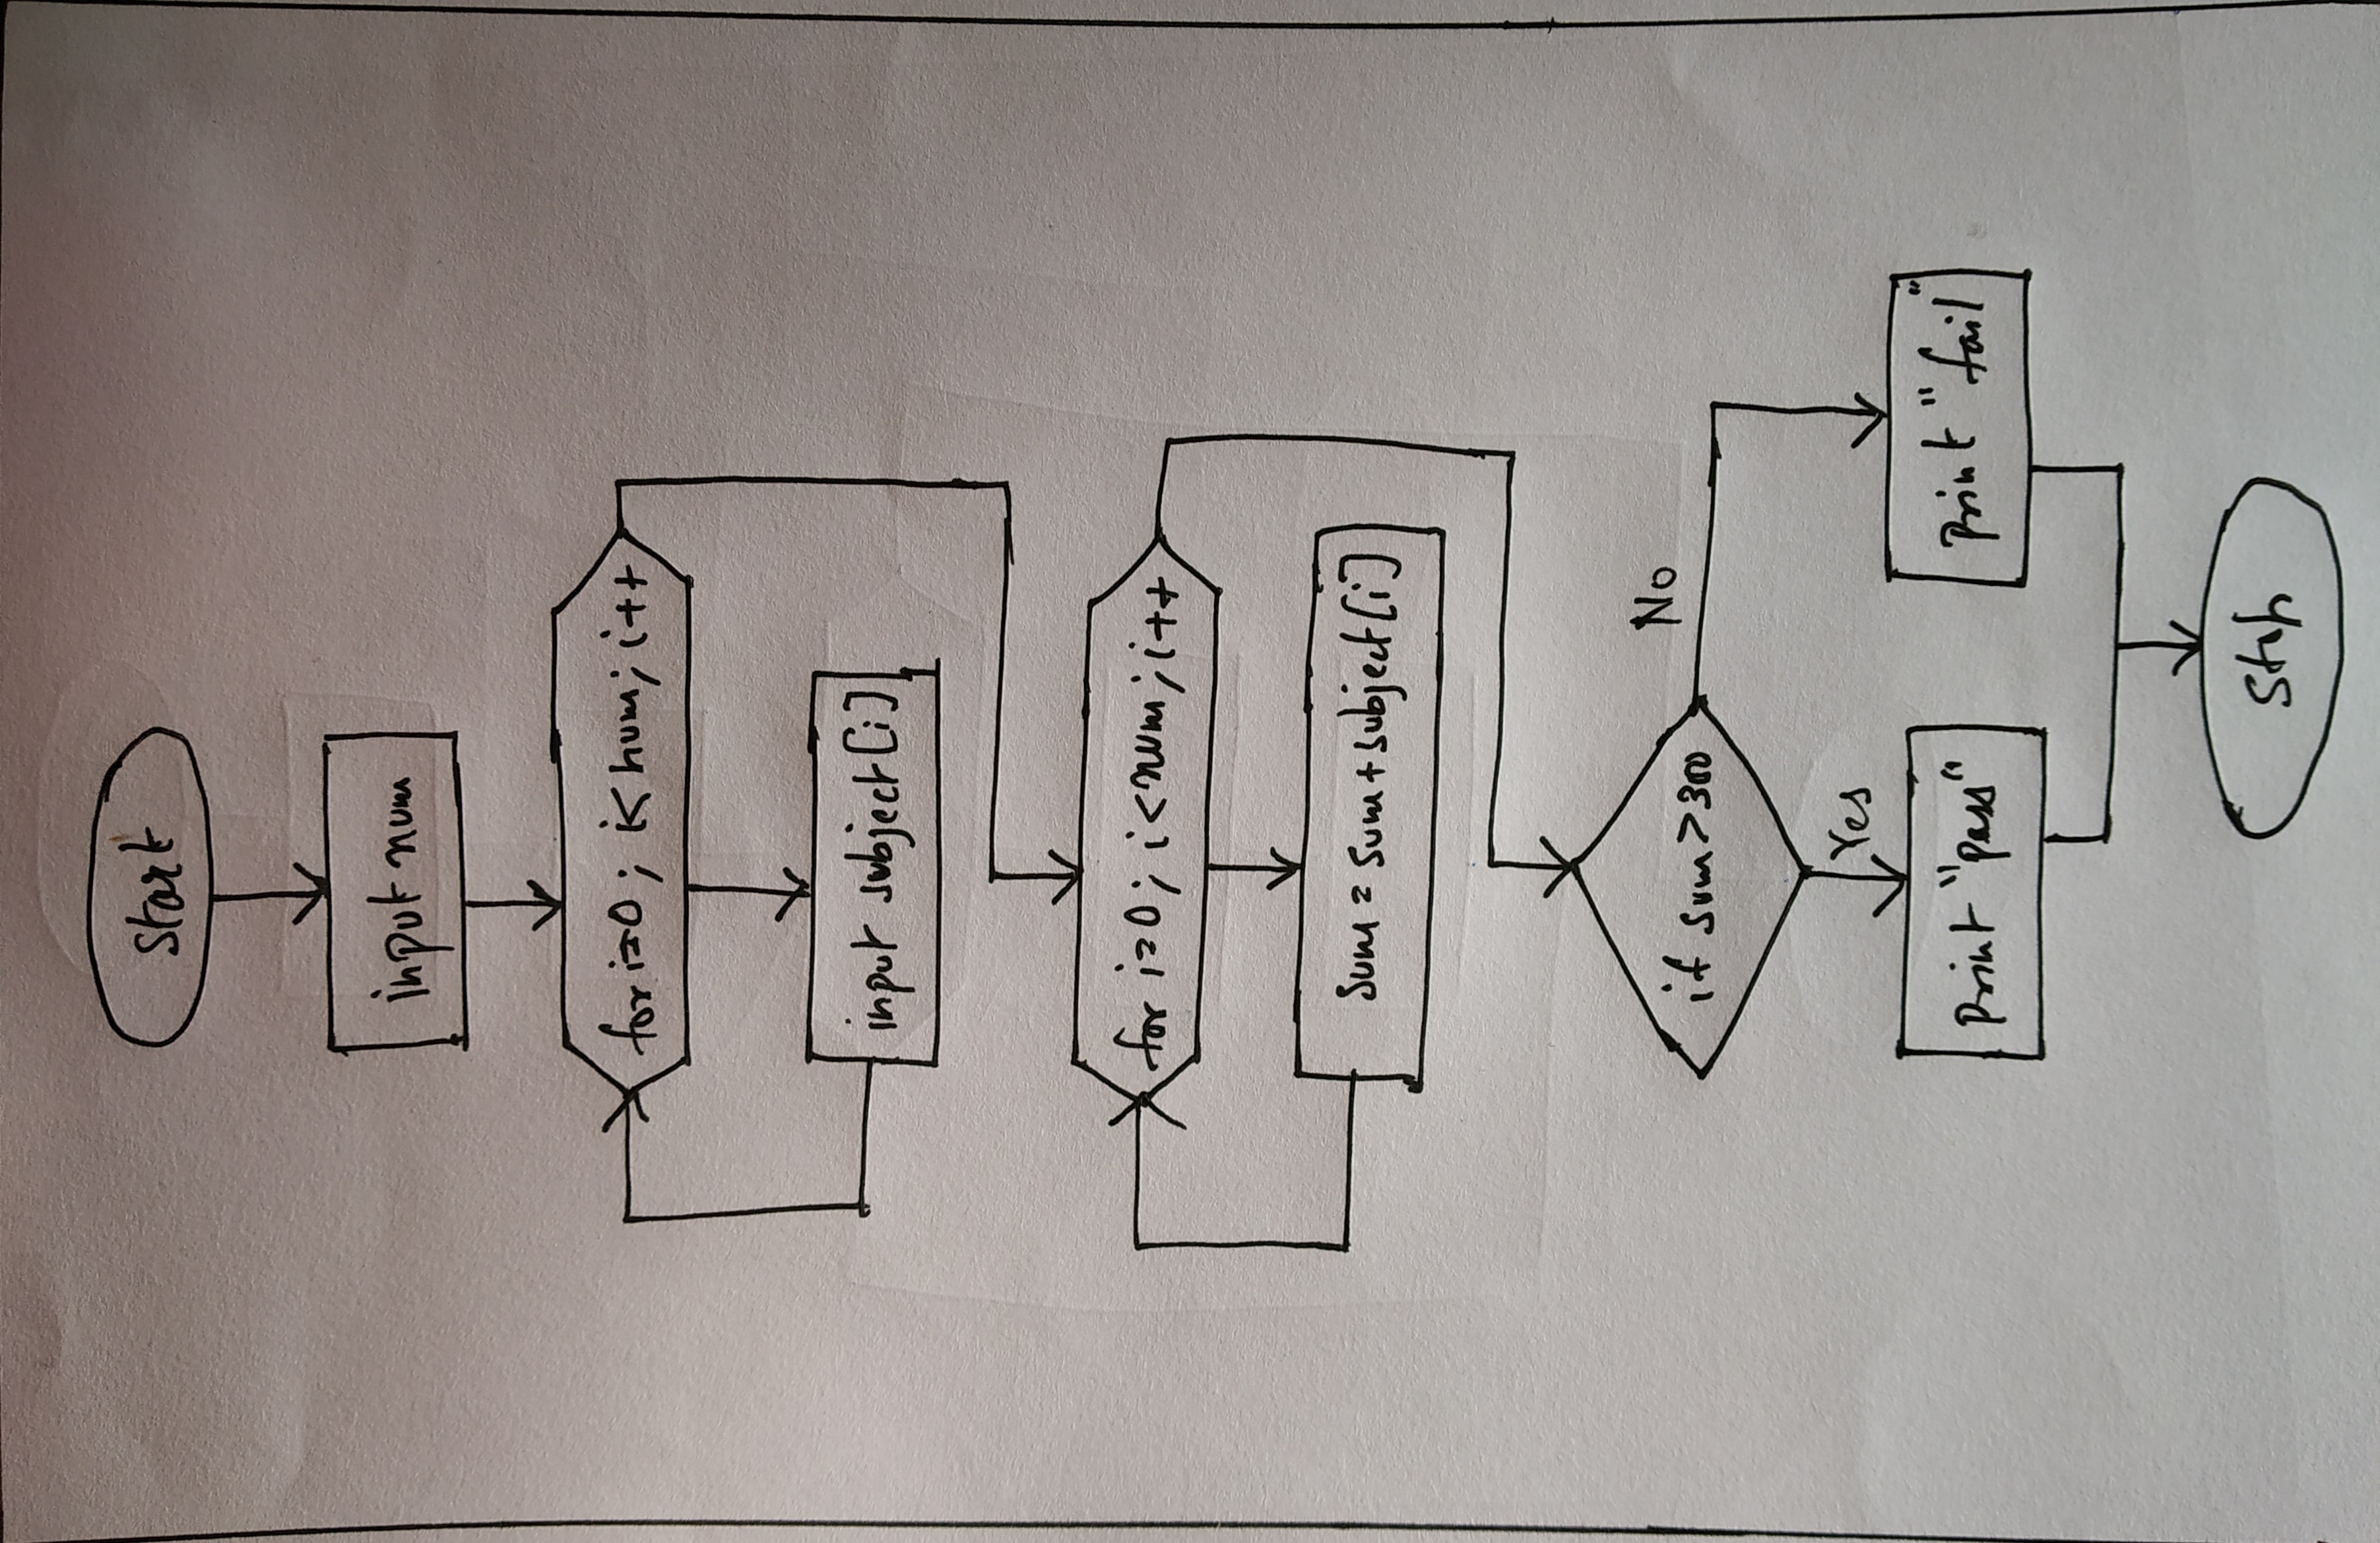 Start
input num
for i=0; i<num; i++
input subject[i]
for i=0; i<num; i++
sum = sum+subject[i]
if sum>300
No
Yes
print "pass"
print "fail"
Stop